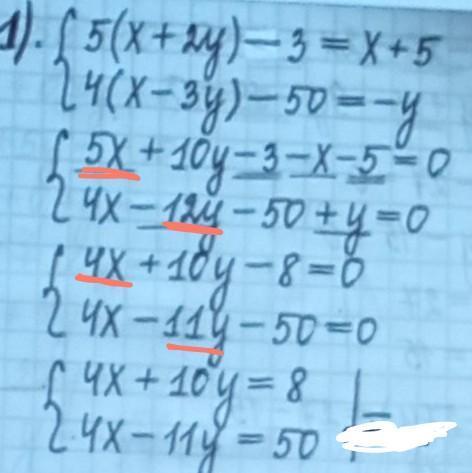 1). { 5(x+2y)-3=x+5
4(x-3y)-50=-y
{ 5x+10y-3-x-5=0
4x-12y-50+y=0
{ 4x+10y-8=0
4x-11y-50=0
{ 4x+10y=8
4x-11y=50 | -